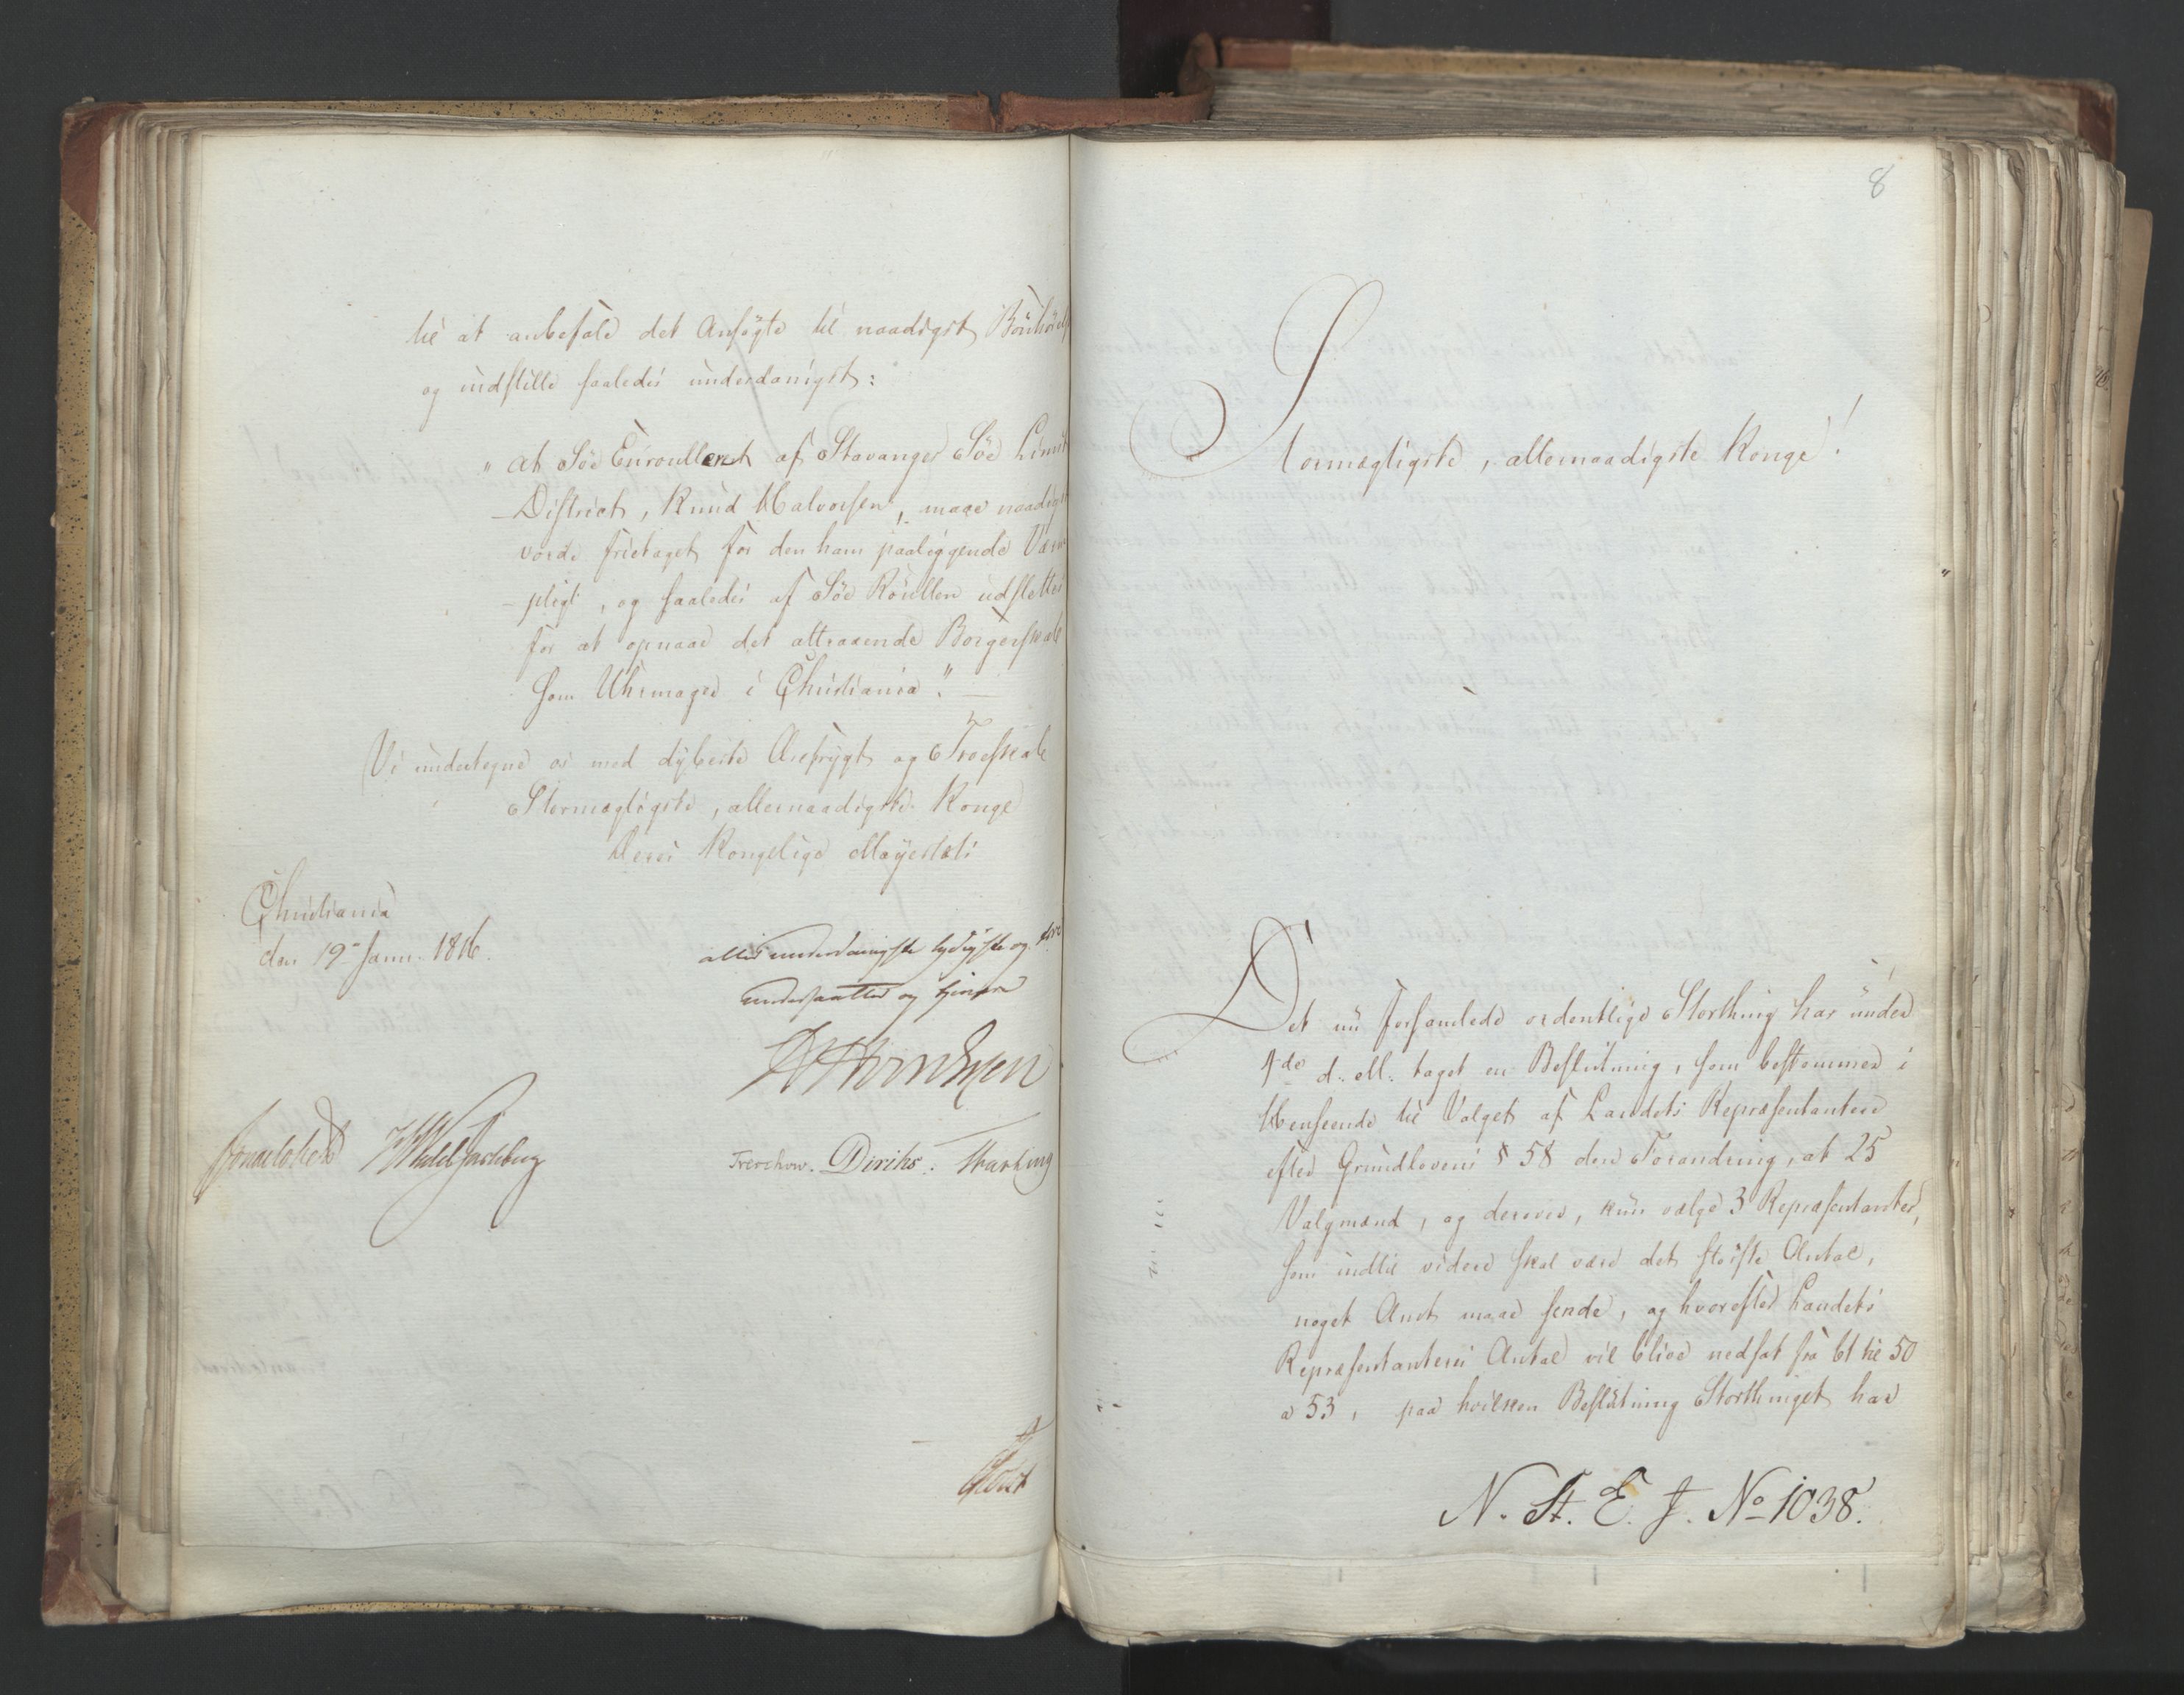 til at anbefale det Ansøgte til naadigst Bönhörelse
og indstille saaledes underdanigst:
"at Söe Enroulleret af Stavanger Söe Limit
District, Knud Halvorsen, maae naadigst
vorde fritaget for den ham paaliggende Værne
-pligt, og saaledes af Söe Roullen udslettes
for at opnaae det attraaende Borgerskab
som Uhrmager i Christiania."
Vi undertegne os med dybeste Ærefrygt og Troeskab
Stormægtigste, allernaadigste Konge
Deres Kongelige Mayestæts
Christiania
den 19de Janr. 1816.
allerunderdanigste lydigste og troe
undersaatter og tjenere
Sommerhielm
Treschow. Diriks. Krohg
Holst
8
Stormægtigste, allernaadigste Konge!
Det nu forsamlede ordentlige Storthing har under
4de d. M. taget en Beslutning, som bestemmer i
Henseende til Valget af Landets Repræsentantere
efter Grundlovens § 58 den Forandring, at 25
Valgmænd, og derover, kun vælge 3 Repræsentanter,
som indtil videre skal være det störste Antal,
noget Amt maae sende, og hvorefter Landets
Repræsentanters Antal vil blive nedsat fra 61 til 50
a 53, paa hvilken Beslutning Storthinget har
N. St. E. J. No 1038.